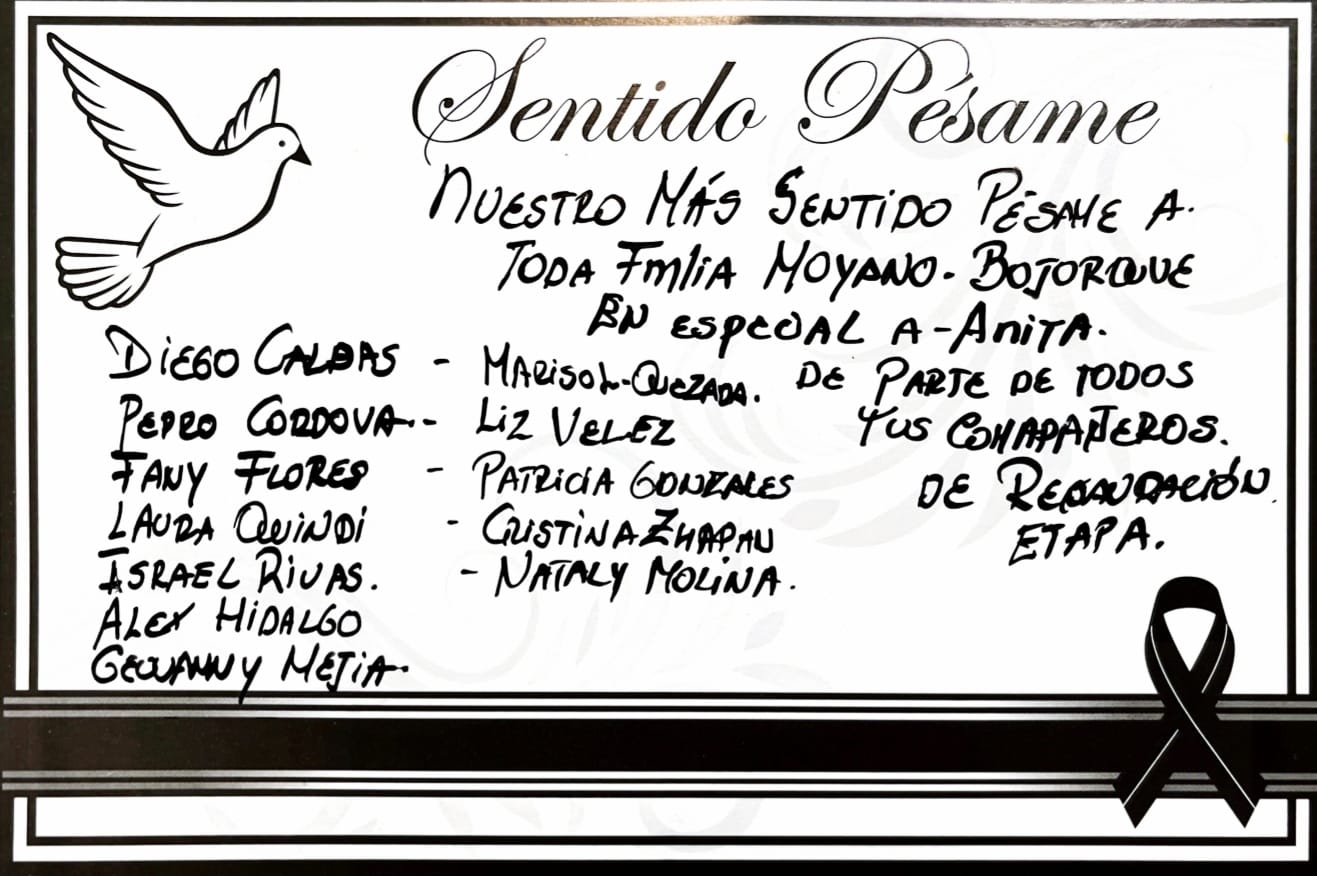 Sentido Pésame
NUESTRO MÁS SENTIDO PÉSAME A.
TODA FMlIA MOYANO - BOJORQUE
EN ESPECIAL A - ANITA.
DE PARTE DE TODOS
TUS COMAPAÑEROS.
DE RECAUDACIÓN
ETAPA.
DIEGO CALDAS - MARISOL - QUEZADA.
PEDRO CORDOVA - LIZ VELEZ
FANY FLORES - PATRICIA GONZALES
LAURA QUINDI - CRISTINA ZHAPAN
ISRAEL RIVAS. - NATALY MOLINA.
ALEX HIDALGO
GEOVANNY MEJIA.